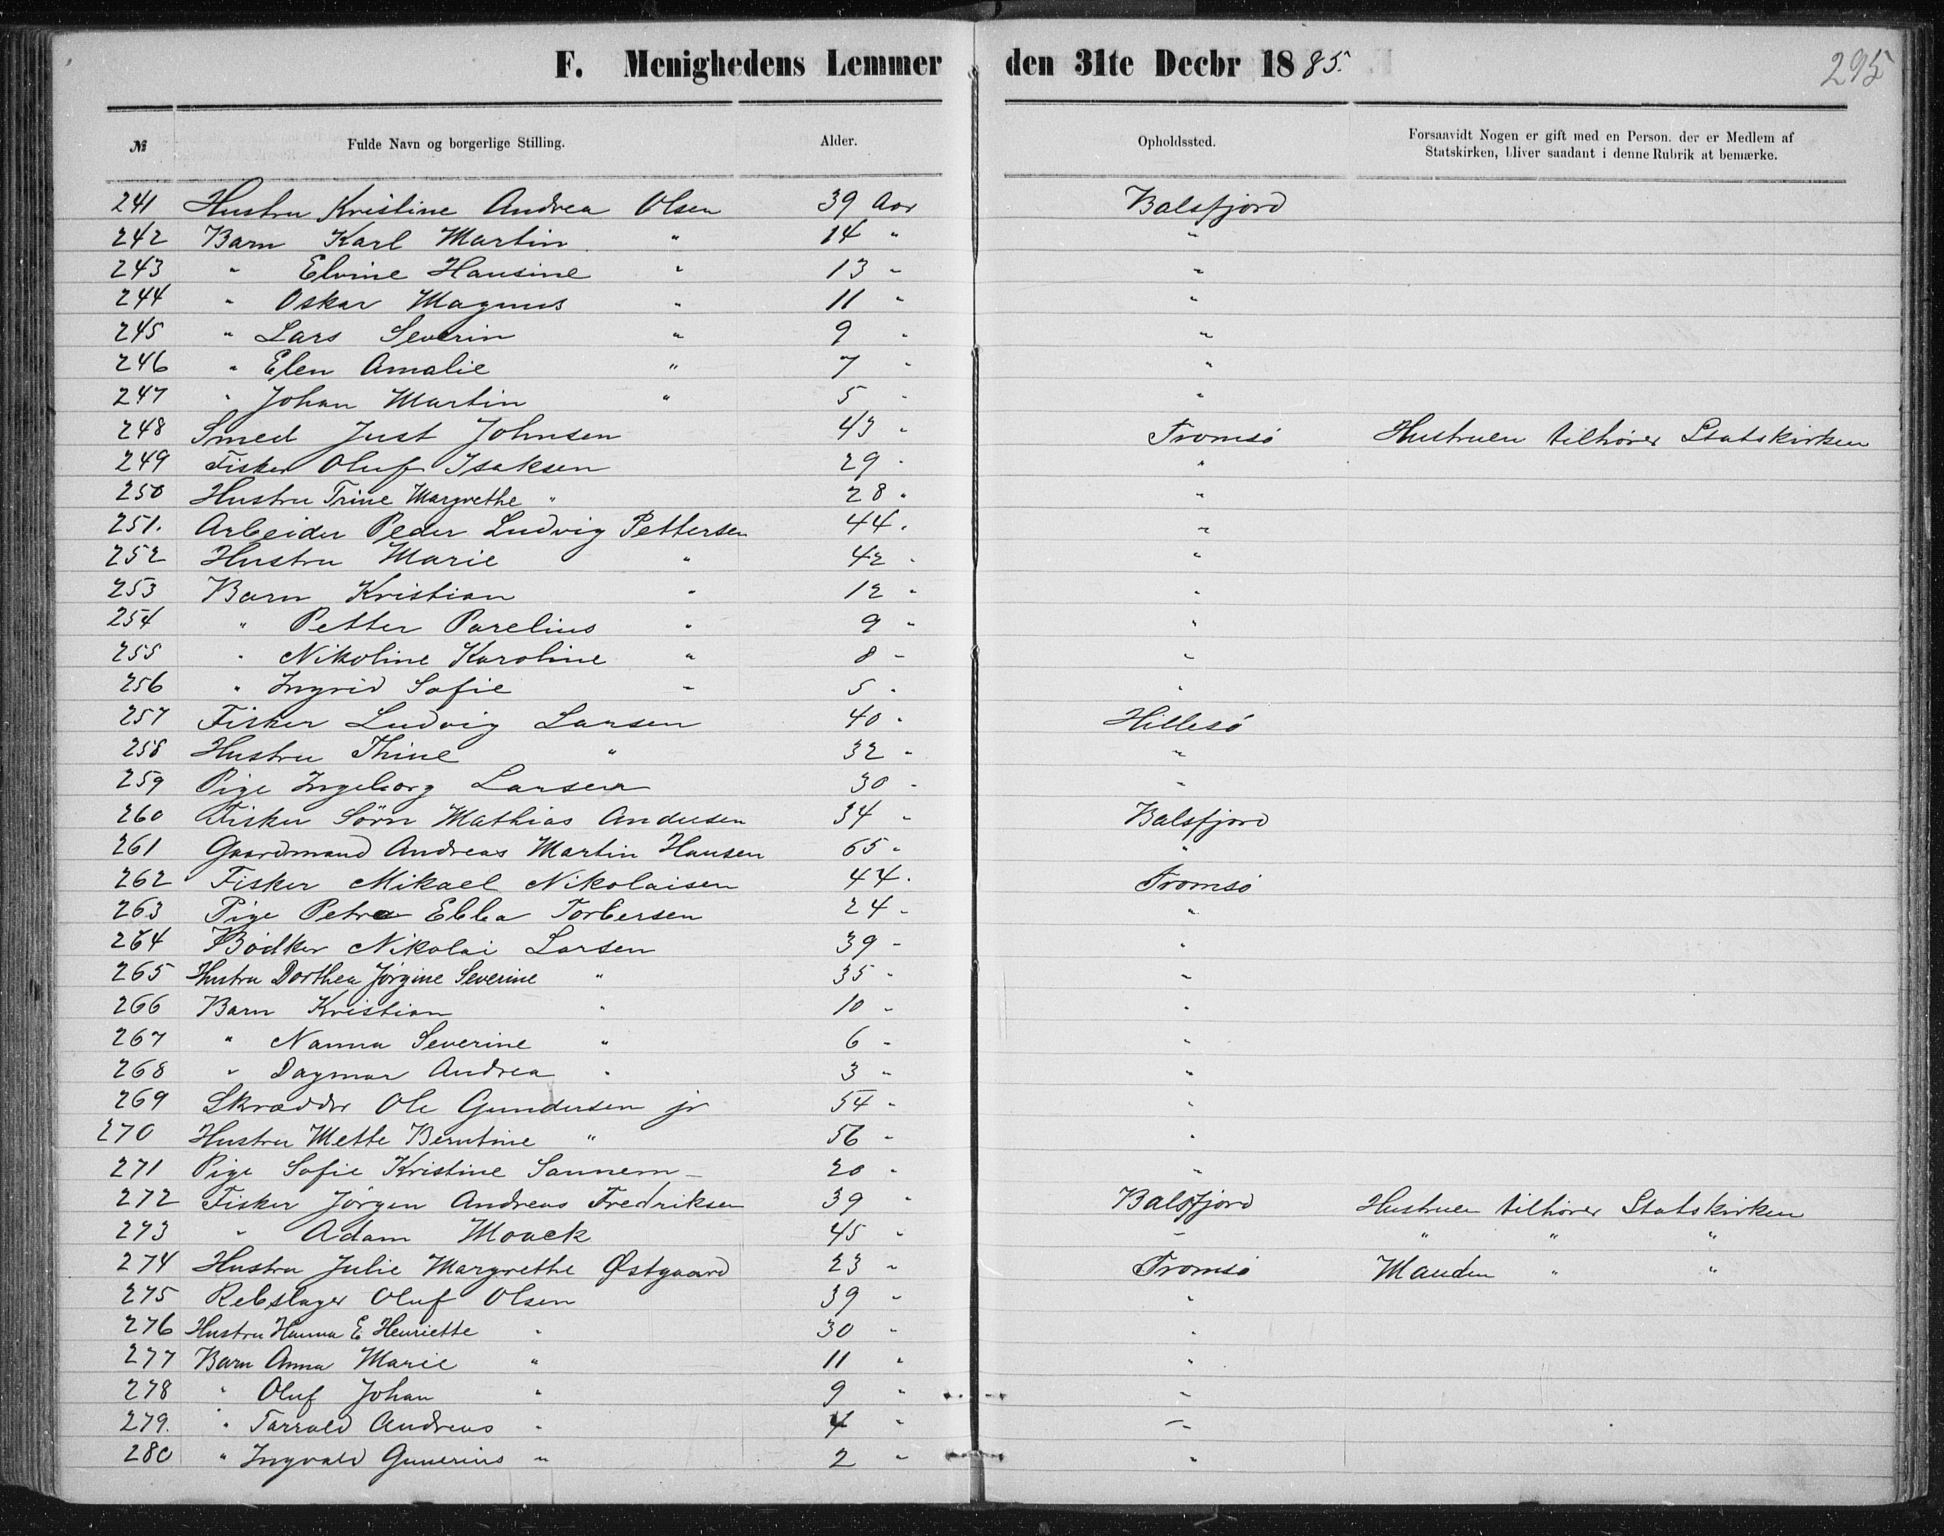 F. Menighedens Lemmer den 31te Decbr 1885. 295
№ Fulde Navn og borgerlige Stilling. Alder. Opholdssted. Forsaavidt Nogen er gift med en Person, der er Medlem af Statskirken, bliver saadant i denne Rubrik at bemærke.
241 Hustru Kristine Andrea Olsen 39 Aar Balsfjord
242 Barn Karl Martin " 14 " "
243 " Elvine Hansine " 13 " "
244 " Oskar Magnus " 11 " "
245 " Lars Severin " 9 " "
246 " Elen Amalie " 7 " "
247 " Johan Martin " 5 " "
248 Smed Just Johnsen 43 " Tromsø Hustruen tilhører Statskirken
249 Fisker Oluf Isaksen 29 " "
250 Hustru Trine Margrethe " 28 " "
251. Arbeider Peder Ludvig Pettersen 44 " "
252 Hustru Marie " 42 " "
253 Barn Kristian " 12 " "
254 " Petter Parelius " 9 " "
255 " Nikoline Karoline " 8 " "
256 " Ingrid Sofie " 5 " "
257 Fisker Ludvig Larsen 40 " Hillesø
258 Hustru Thine " 32 " "
259 Pige Ingeborg Larsen 30 " "
260 Fisker Sørn Mathias Andersen 34 " Balsfjord
261 Gaardmand Andreas Martin Hansen 65 " "
262 Fisker Mikael Nikolaisen 44 " Tromsø
263 Pige Petra Ebba Torbersen 24 " "
264 Bødker Nikolai Larsen 39 " "
265 Hustru Dorthea Jørgine Severine " 35 " "
266 Barn Kristian " 10 " "
267 " Nanna Severine " 6 " "
268 " Dagmar Andrea " 3 " "
269 Skrædder Ole Gundersen jr 54 " "
270 Hustru Mette Berntine " 56 " "
271 Pige Sofie Kristine Sannem 20 " "
272 Fisker Jørgen Andreas Fredriksen 39 " Balsfjord Hustruen tilhører Statskirken
273 " Adam Mouck 45 " " " " "
274 Hustru Julie Margrethe Østgaard 23 " Tromsø Manden " "
275 Rebslager Oluf Olsen 39 " "
276 Hustru Hanna E Henriette " 30 " "
277 Barn Anna Marie " 11 " "
278 " Oluf Johan " 9 " "
279. " Tarrald Andreas " 4 " "
280 " Ingvald Gunerius " 2 " "